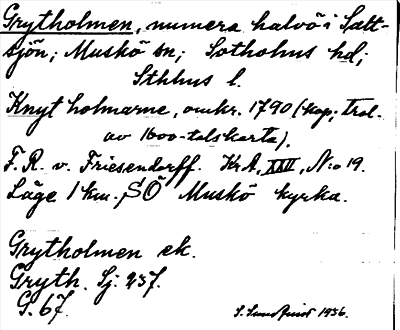 Grytholmen, numera halvö i Salt-
sjön; Muskö sn; Sotholms hd;
Sthlms l.
Knyt holmarne, omkr. 1790 (kop; trol.
av 1600-talskarta).
F. R. v. Friesendorff. KrA, XXII, N:o 19.
Läge 1 km. SÖ Muskö kyrka.
Grytholmen ek.
Gryth. Sj: 237.
G. 67.
1936.